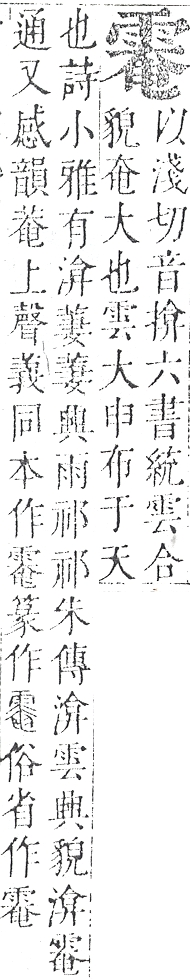 以淺切音揜六書統雲合
貌奄大也雲大申布于天
也詩小雅有渰萋萋興雨祁祁朱傳渰雲興貌渰䨄
通又感韻菴上聲義同本作䨄篆作俗省作䨄